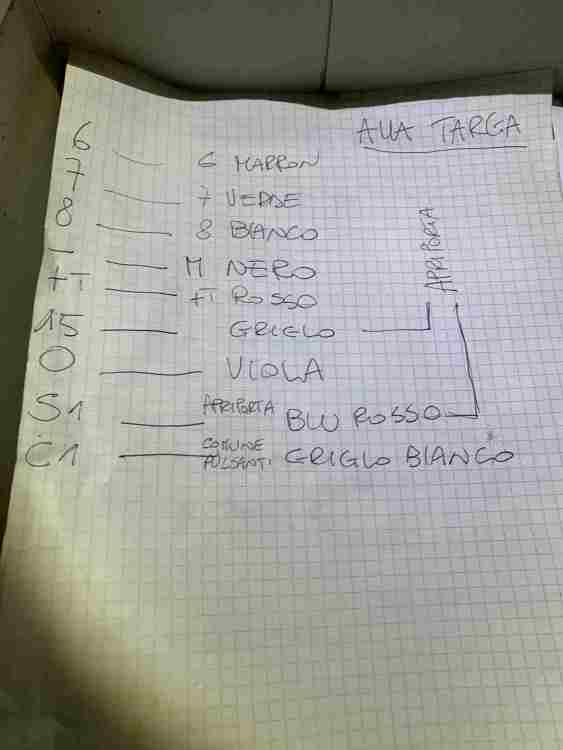 ALLA TARGA
6 — 6 MARRON
7 — 7 VERDE
8 — 8 BIANCO
- — M NERO
+T — +T ROSSO
15 — GRIGIO —
O — VIOLA
S1 — APRIPORTA BLU ROSSO
C1 — COMUNE PULSANTI GRIGIO BIANCO
APRIPORTA